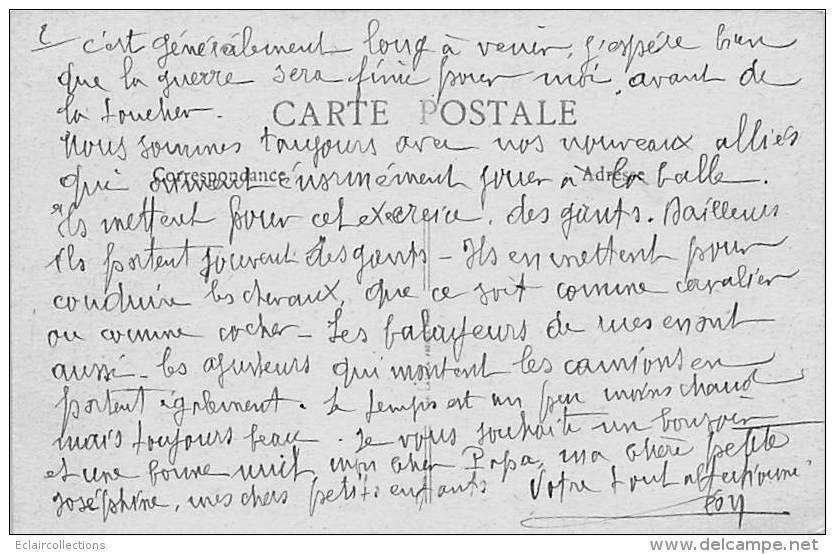 2
c'est généralement long à venir, j'espère bien
que la guerre sera finie pour moi avant de
la toucher.
CARTE POSTALE
Nous sommes toujours avec nos nouveaux alliés
Correspondance Adresse
qui aiment énormément jouer à la balle.
Ils mettent pour cet exercice, des gants. Dailleurs
ils portent souvent des gants - Ils en mettent pour
conduire les chevaux, que ce soit comme cavalier
ou comme cocher - Les balayeurs de rues en ont
aussi - les ajusteurs qui montent les camions en
portent également. Le temps est un peu moins chaud
mais toujours beau. Je vous souhaite un bonsoir
et une bonne nuit, mon cher Papa, ma chère petite
Joséphine, mes chers petits enfants Votre tout affectionné
Eclaircollections
www.delcampe.net